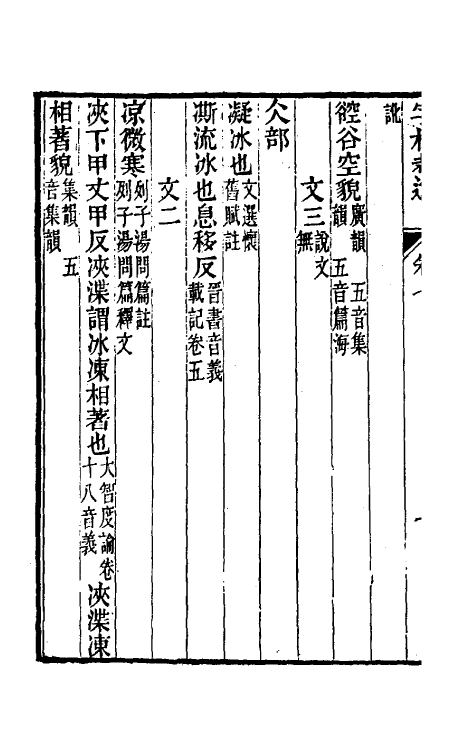 訛
谾谷空貌廣韻 五音集韻 五音篇海
文三說文無
仌部
凝冰也文選懷舊賦註
凘流冰也息移反晉書音義載記卷五
文二
凉微寒列子湯問篇註列子湯問篇釋文
浹下甲丈甲反浹渫謂冰凍相著也大智度論卷十八音義浹渫凍
相著貌集韻 五音集韻